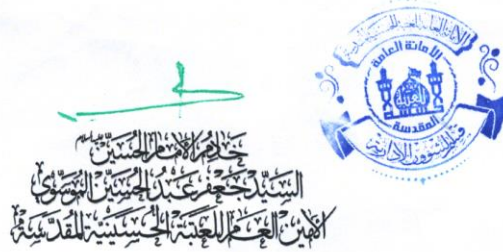 خادم الإمام الحسين
السيد جعفر عبد الحسين الموسوي
الأمين العام للعتبة الحسينية المقدسة
الأمانة العامة
للعتبة
المقدسة
قسم الشؤون الإدارية